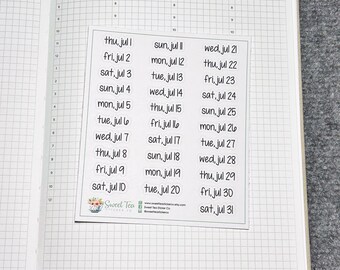 thu, jul 1
fri, jul 2
sat, jul 3
sun, jul 4
mon, jul 5
tue, jul 6
wed, jul 7
thu, jul 8
fri, jul 9
sat, jul 10
sun, jul 11
mon, jul 12
tue, jul 13
wed, jul 14
thu, jul 15
fri, jul 16
sat, jul 17
sun, jul 18
mon, jul 19
tue, jul 20
wed, jul 21
thu, jul 22
fri, jul 23
sat, jul 24
sun, jul 25
mon, jul 26
tue, jul 27
wed, jul 28
thu, jul 29
fri, jul 30
sat, jul 31
Sweet Tea